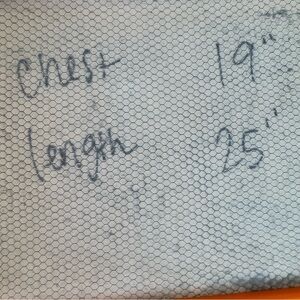 chest 19"
length 25"